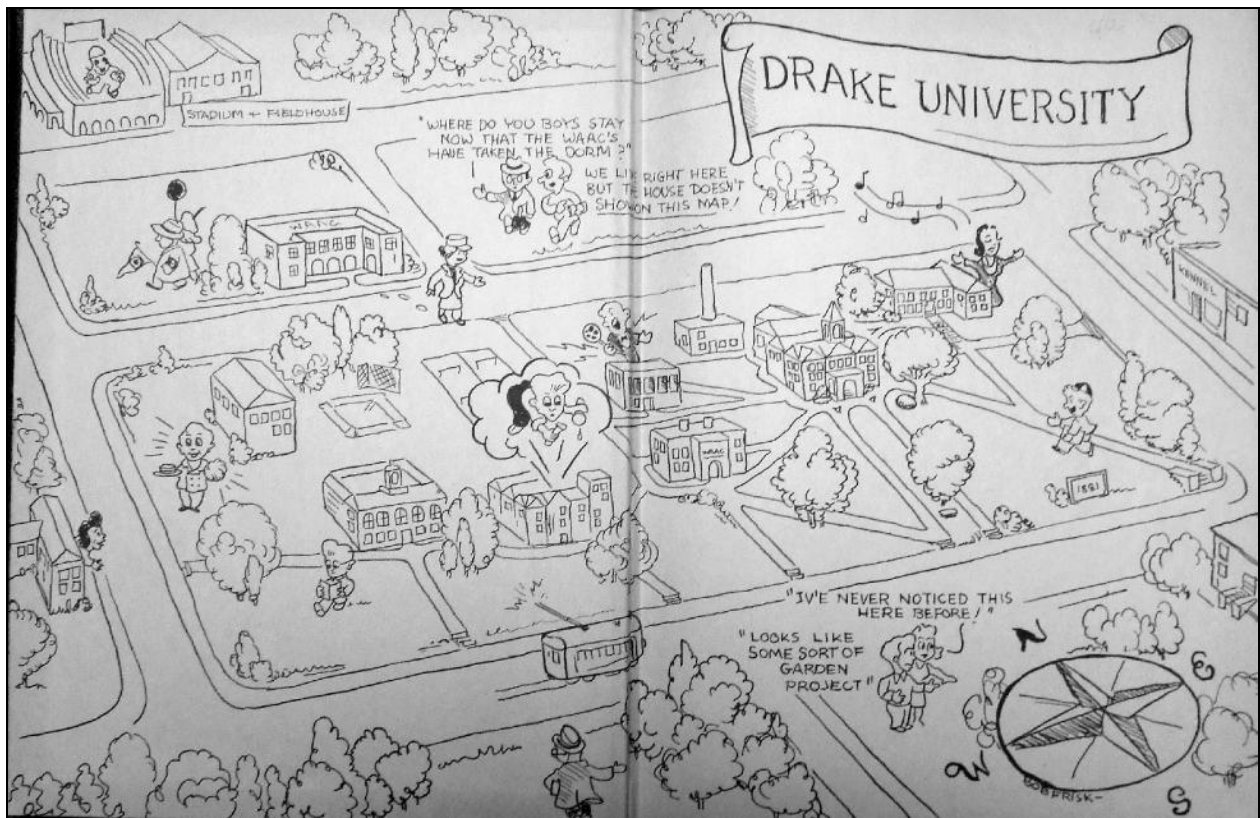 DRAKE UNIVERSITY
STADIUM + FIELDHOUSE
"WHERE DO YOU BOYS STAY
NOW THAT THE WAAC'S
HAVE TAKEN THE DORM?"
WE RIGHT HERE
BUT HOUSE DOESN'T
ON THIS MAP!
WAAC
KENNEL
WAAC
1881
"IV'E NEVER NOTICED THIS
HERE BEFORE!"
"LOOKS LIKE
SOME SORT OF
GARDEN
PROJECT"
N
E
W
S
BOB FRISK-